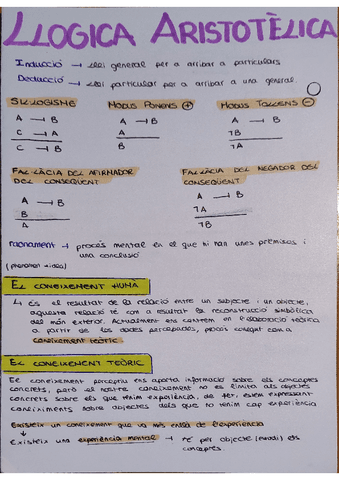 LLOGICA ARISTOTÈLICA
Inducció → llei general per a arribar a particulars
Deducció → llei particular per a arribar a una general.
SIL·LOGISME MODUS PONENS + MODUS TOLLENS -
A → B A → B A → B
C → A A ¬B
C → B B ¬A
FAL·LÀCIA DEL AFIRMADOR FAL·LÀCIA DEL NEGADOR DEL
DEL CONSEQÜENT CONSEQÜENT
A → B A → B
B ¬A
A ¬B
raonament → procés mental en el que hi han unes premisses i
una conclusió
EL CONEIXEMENT HUMÀ
↳ és el resultat de la relació entre un subjecte i un objecte,
aquesta relació té com a resultat la reconstrucció simbòlica
del món exterior. Actualment ens centrem en l'elaboració teòrica
a partir de les dades percebudes, procés conegut com a
coneixement teòric
EL CONEIXEMENT TEÒRIC
El coneixement perceptiu ens aporta informació sobre els conceptes
concrets, però el nostre coneixement no es limita als objectes
concrets sobre els que tenim experiència, de fet, estem expressant
coneiximents sobre objectes dels que no tenim cap experiència
Existeix un coneixement que va més enllà de l'experiència
↳ Existeix una experiència mental → té per objecte els
conceptes.